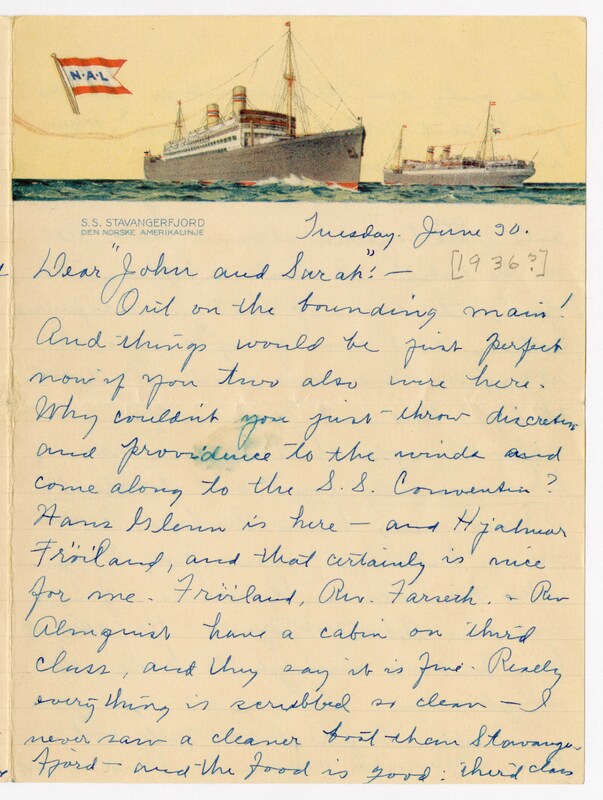 N·A·L
S.S. STAVANGERFJORD
DEN NORSKE AMERIKALINJE
Tuesday. June 30.
[1936?]
Dear "John and Sarah"! —
Out on the bounding main!
And things would be just perfect
now if you two also were here.
Why couldn't you just throw discretion
and providence to the winds and
come along to the S.S. Convention?
Hans Glenn is here — and Hjalmar
Fröiland, and that certainly is nice
for me. Fröiland, Rev. & Rev
Almquist have a cabin on third
class, and they say it is fine. Really
everything is scrubbed so clean — I
never saw a cleaner boat than Stavanger
fjord — and the food is good: third class